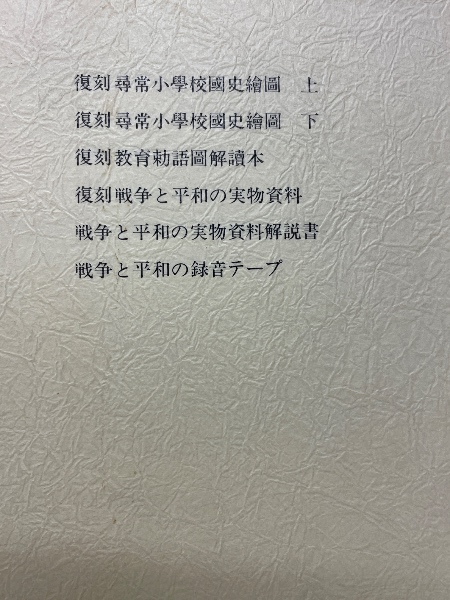 復刻 尋常小學校國史繪圖　上
復刻 尋常小學校國史繪圖　下
復刻 教育勅語圖解讀本
復刻 戦争と平和の実物資料
戦争と平和の実物資料解説書
戦争と平和の録音テープ